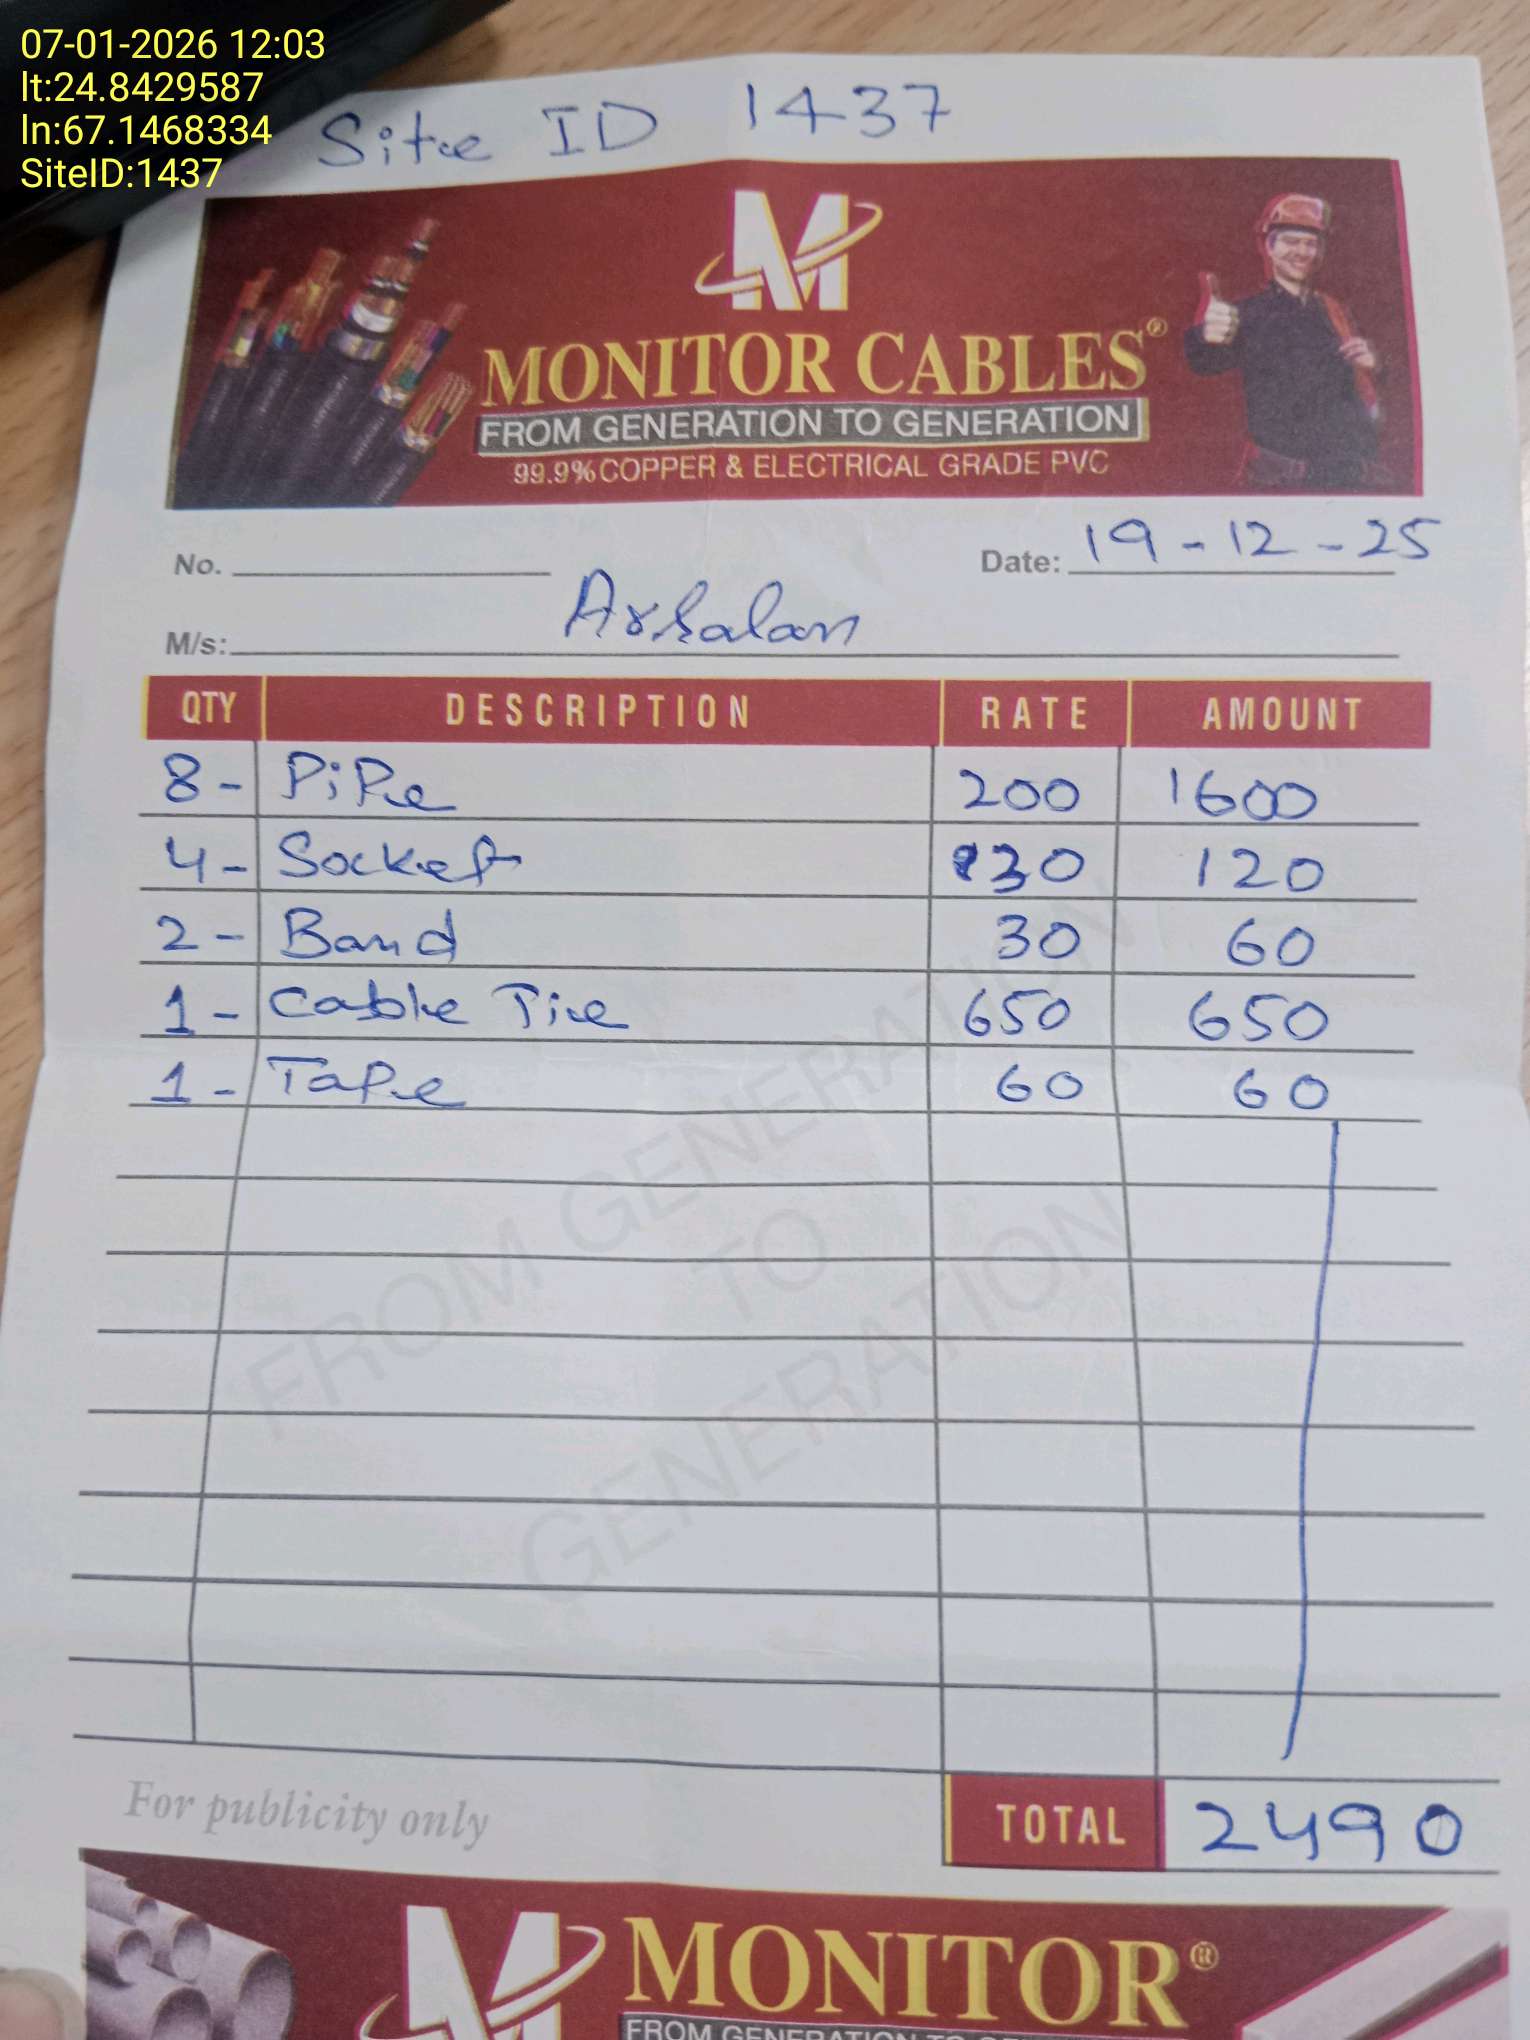 07-01-2026 12:03
lt:24.8429587
ln:67.1468334
SiteID:1437
Site ID 1437
M
MONITOR CABLES®
FROM GENERATION TO GENERATION
99.9% COPPER & ELECTRICAL GRADE PVC
No. Date: 19-12-25
M/s: Arsalan
QTY DESCRIPTION RATE AMOUNT
8- PiPe 200 1600
4- Socket 30 120
2- Band 30 60
1- Cable Tie 650 650
1- Tape 60 60
FROM GENERATION
TO
GENERATION
For publicity only TOTAL 2490
M MONITOR®
FROM GENERATION TO